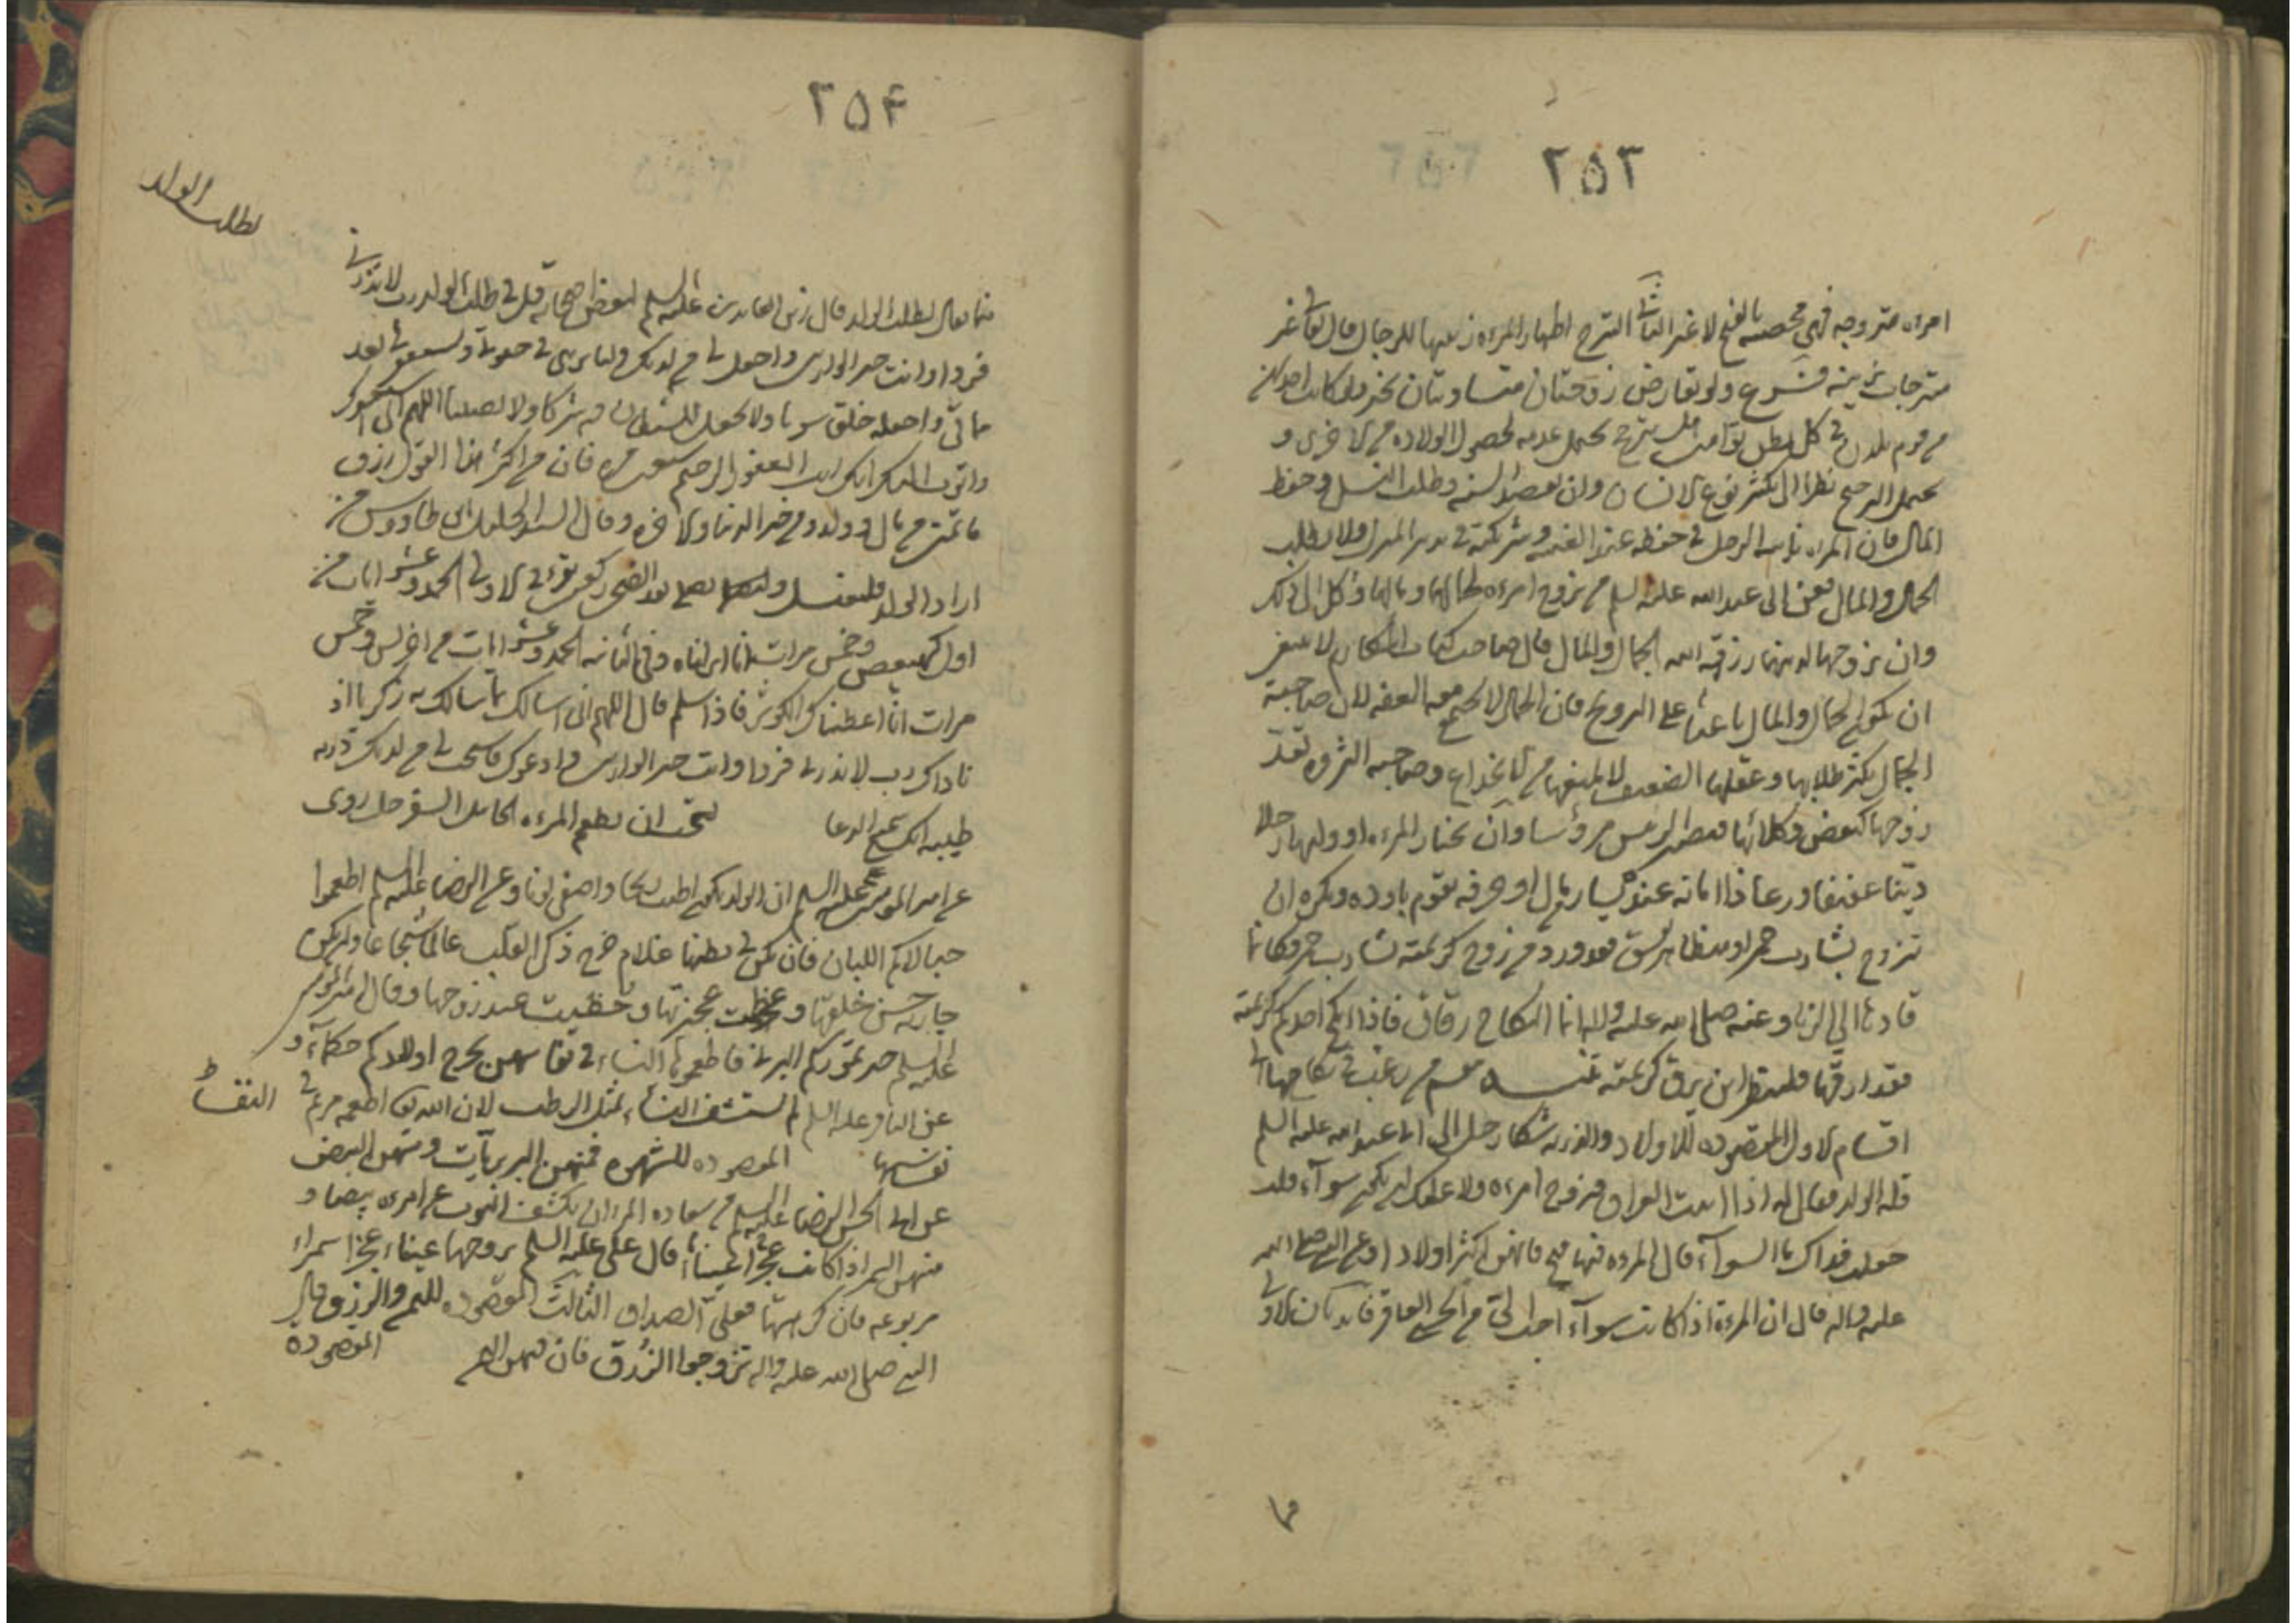 ۲۵۳
امرءه متزوجه فهى محصنه بالفتح لا غير الثالث التبرج اظهار المرءه زينتها للرجال قال تعالى غير
متبرجات بزينه فـرع ولو تعارض زوجتان متساويتان تخير ولو كانت احديهن
من قوم يلدن فى كل بطن توامين هل يترجح يحتمل عدمه لحصول الولاده من الاخرى و
يحتمل الترجيح نظرا الى تكثير نوع الانسان وان يقصد السنه وطلب النسل وحفظ
المال فان المراه نايبه الرجل فى حفظه عند الغيبه وشريكته فى تدبير المنزل ولا يطلب
الجمال والمال فعن ابى عبد الله عليه السلم من تزوج امرءه لجمالها وبمالها وكل الى ذلك
وان تزوجها لدينها رزقه الله الجمال والمال قال صاحب كتاب لا ينبغى
ان يكون الجمال والمال باعثا على التزويج فان الجمال لا يجتمع معه العفه لان صاحبة
الجمال يكثر طلابها وعقلها الضعيف لا يمنعها من الانخداع وصاحبه الثروه تعد
زوجها كبعض وكلائها فيصير الرئيس مرؤسا وان تختار المرءه او وليها رجلا
دينا عفيفا ورعا ذا امانه عنده يسار بمال او حرفه تقوم باوده ويكره ان
تتزوج بشارب خمر او متظاهر بفسق فقد ورد من زوج كريمته بشارب خمر فكانما
قادها الى الزنا وعنه صلى الله عليه واله انما النكاح رقاق فاذا انكح احدكم كريمته
فقد ارقها فلينظر اين يرق كريمته من رغب فى نكاحها
اقسام الاول المقصوده للاولاد والذريه شكا رجل الى ابى عبد الله عليه السلم
قله الولد فقال له اذا اتيت العراق فتزوج امرءه ولا عليك ان تكون سوآء قلت
جعلت فداك ما السوآء قال امرءه فيها قبح فانهن اكثر اولادا وعن النبى صلى الله
عليه واله قال ان المرءة اذا كانت سوآء احب الى من الحسنا العاقر فانه كان الاولى
۲۵۴
لطلب الولد
فيما يعمل لطلب الولد قال زين العابدين عليه السلم لبعض اصحابه قل فى طلب الولد رب لا تذرنى
فردا وانت خير الوارثين واجعل لى من لدنك وليا يرثنى فى حيوتى ويستغفر لى بعد
مماتى واجعله خلقا سويا ولا تجعل للشيطان فيه شركا ولا نصيبا اللهم انى استغفرك
واتوب اليك انك انت الغفور الرحيم سبعين مره فان من اكثر هذا القول رزق
ما تمنى من مال وولد ومن خير الدنيا والاخره وقال السيد الجليل ابن طاووس من
اراد الولد فليغتسل وليصلى بعد الضحى ركعتين يقرء فى الاولى الحمد وعشر ايات من
اول كهيعص وخمس مرات انا انزلناه وفى الثانيه الحمد وعشر ايات من اخر يس وخمس
مرات انا اعطيناك الكوثر فاذا سلم قال اللهم انى اسالك بما سالك به زكريا اذ
ناداك رب لا تذرنى فردا وانت خير الوارثين وادعوك فاستجب لى من لدنك ذريه
طيبه انك سميع الدعا يستحب ان يطعم المرءه الحامل السفرجل روى
عن امير المومنين عليه السلم ان الولد يكون اطيب ريحا واصفى لونا وعن الرضا عليه السلم اطعموا
حبالاكم اللبان فان يكن فى بطنها غلام خرج ذكى القلب عالما شجاعا وان يكن
جاريه حسن خلقها وعظمت عجيزتها وحظيت عند زوجها وقال امير المومنين
عليه السلم خير تموركم البرنى فاطعموها النساء فى نفاسهن يخرج اولادكم حكمآء و
عن الباقر عليه السلم لم تستشف النساء بمثل الرطب لان الله تعالى اطعمه مريم فى
نفاسها المقصوده للشهوه فمنهن البربريات ومنهن البيض
عن ابى الحسن الرضا عليه السلم من سعاده المرء ان يكشف الثوب عن امرءه بيضا و
منهن السمرا اذا كانت عجزا عينا قال على عليه السلم تزوجها عيناء عجزا سمراء
مربوعه فان كرهتها فعلى الصداق الثالث المقصوده لليمن والرزق قال
النبى صلى الله عليه واله تزوجوا الزرق فان فيهن اليمن المقصوده